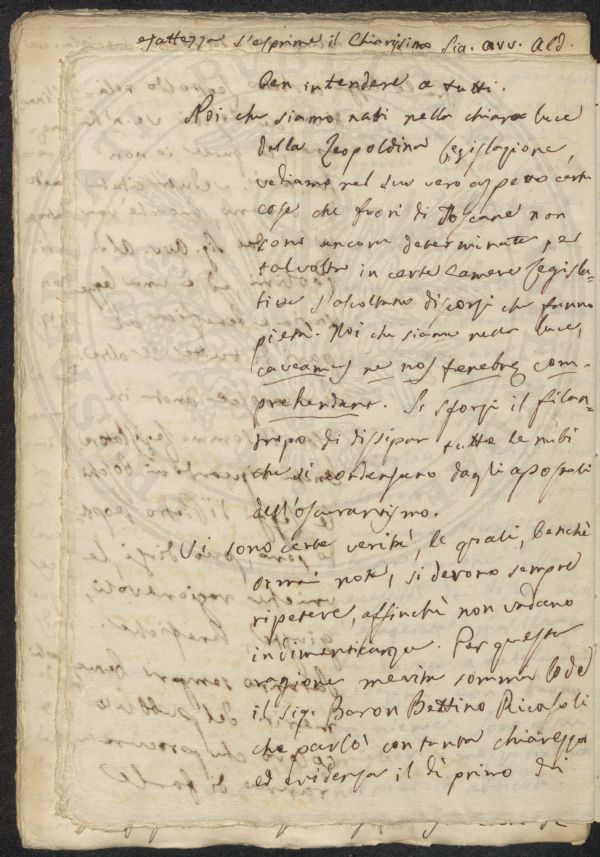 esattezza s'esprime il Chiarissimo Sig. avv. Ald.
ben intendere a tutti.
Noi che siamo nati nella chiara luce
della Leopoldina Legislazione,
vediamo nel suo vero aspetto certe
cose che fuori di Toscana non
sono ancora determinate, per
talvolta in certe Camere Legisla-
tive s'ascoltano discorsi che fanno
pietà. Noi che siamo nella luce,
caveamus ne nos tenebrę com-
prehendant. Si sforzi il filan-
tropo di dissipar tutte le nubi
che si condensano dagli apostoli
dell'oscurantismo.
Vi sono certe verità, le quali, benchè
ormai note, si devono sempre
ripetere, affinchè non vadano
in dimenticanza. Per questa
ragione merita somma lode
il sig. Baron Bettino Ricasoli
che parlò con tanta chiarezza
ed evidenza il dì primo di